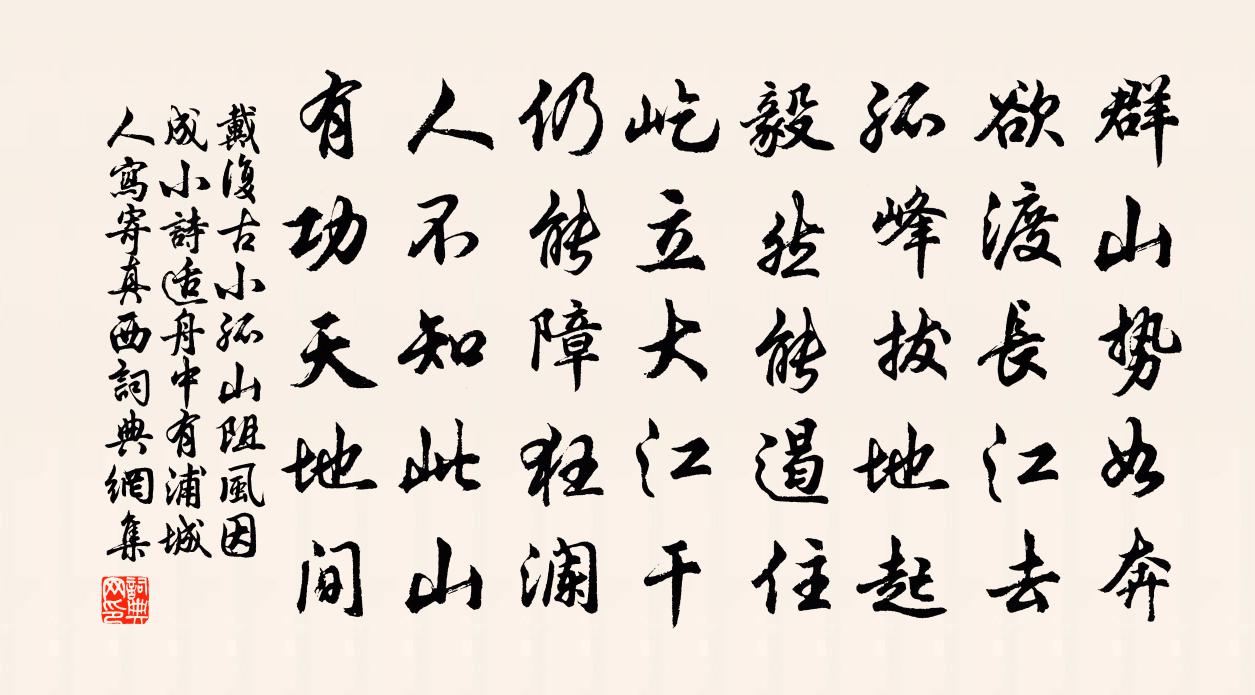 群山勢如奔
欲渡長江去
孤峰拔地起
毅然能遏住
屹立大江干
仍能障狂澜
人不知此山
有功天地间
戴復古小孤山阻風因
成小詩适舟中有浦城
人寫寄真西詞典網集
詞典
网印